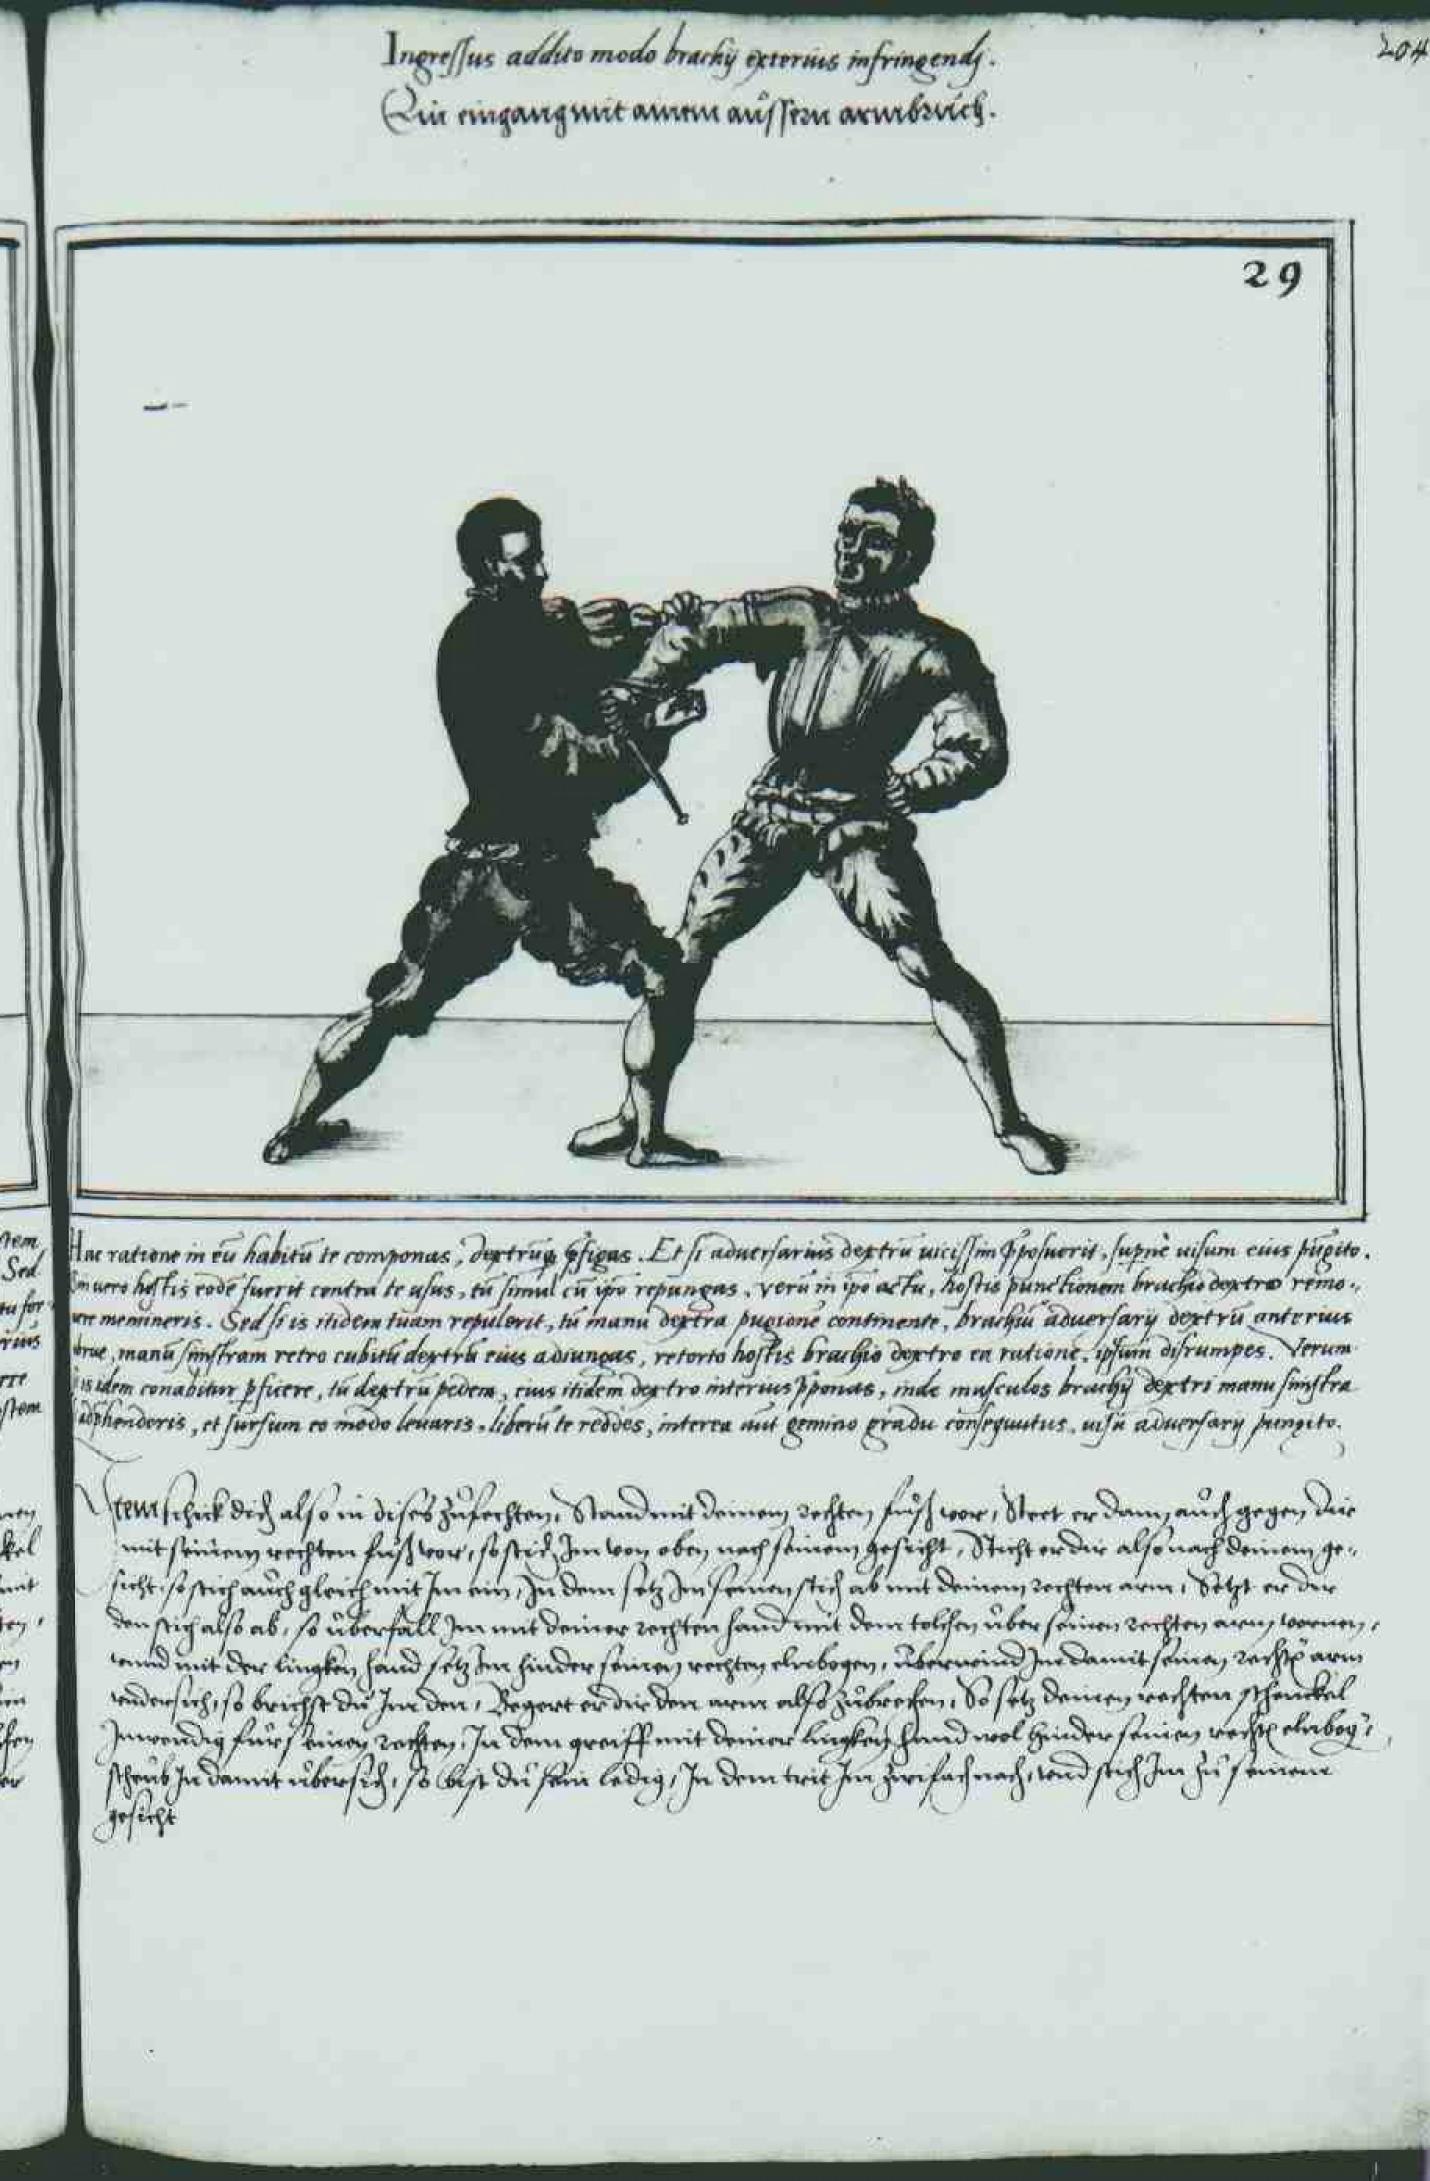 204
Ingressus addito modo brachij exterius infringendj.
Ein eingang mit ainem aůssern armbrůch.
29
Hac ratione in eū habitū te componas, dextrūq p̄figas. Et si adversarius dextrū vicissim p̄posuerit, supernè visum eius pūgito.
vero hostis eodē fuerit contra te usus, tū simul cū ip̄o repungas, verū in ip̄o actu, hostis punctionem brachio dextro remo-
memineris. Sed si is itidem tuam repulerit, tū manu dextra pugionē continente, brachiū adversarij dextrū anterius
manū sinistram retro cubitū dextrū eius adiungas, retorto hostis brachio dextro ea ratione, ipsum disrumpes. Verum
is idem conabitur p̄ficere, tū dextrū pedem, eius itidem dextro interius p̄ponas, inde musculos brachij dextri manu sinistra
et sursum eo modo levaris, liberū te reddes, interea aut gemino gradu consequutus, visū adversarij pungito.
Item schick dich also in dises zůfechten, Stand mit deinem rechten fůß vor, Steet er dann aůch gegen dir
mit seinem rechten fůß vor, so stich Im von oben nach seinem gesicht, Sticht er dir also nach deinem ge-
sicht, so stich aůch gleich mit Im ein, In dem setz Im seinen stich ab mit deinem rechten arm, Setzt er dir
den stich also ab, so ůberfall Im mit deiner rechten hand mit dem tolchen ůber seinen rechten arm vornen,
vnnd mit der lingken hand setz Im hinder seinen rechten elnbogen, ůberwind Im damit seinen rechtē arm
vndersich, so brichst dů Im den, Begert er dir den arm also zůbrechen, So setz deinen rechten schenckel
Inwendig fůr seinen rechten, In dem greiff mit deiner lingken hand wol hinder seinen rechtē elnbogē,
scheůb In damit ůbersich, so bist dů sein ledig, In dem trit Im zwifach nach, vnd stich Im zů seinem
gesicht